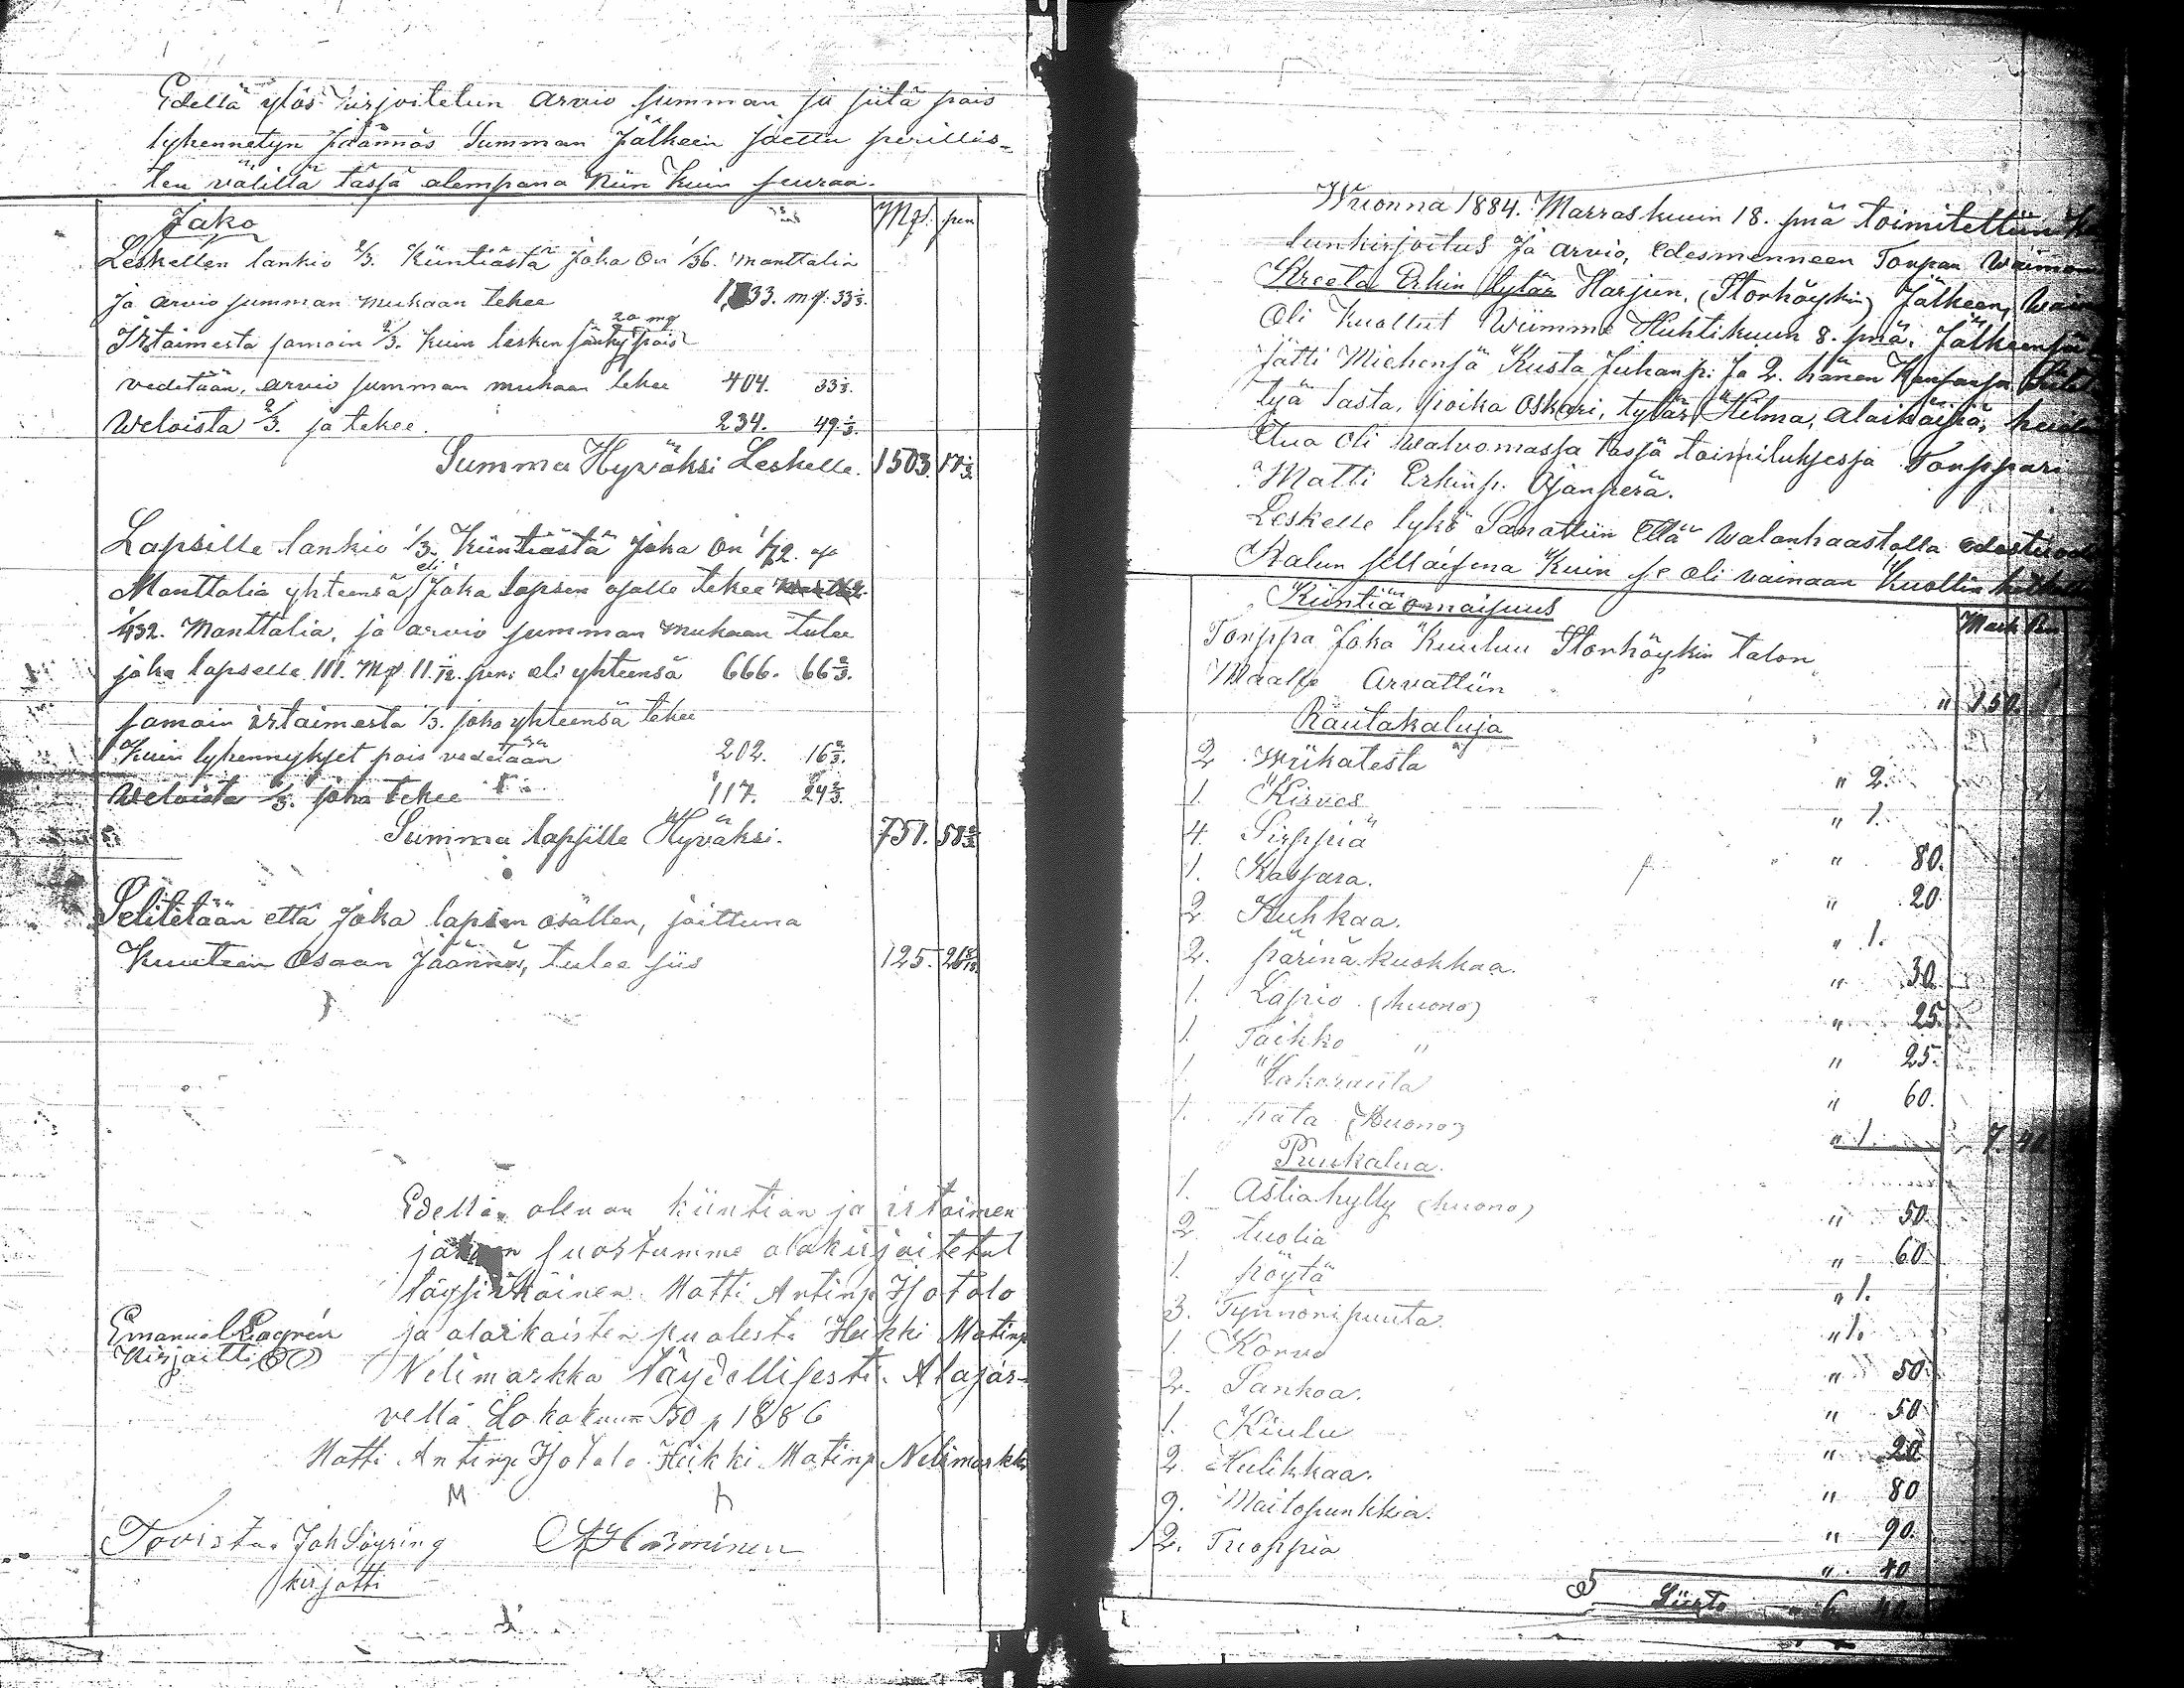 Edellä ylös kirjoitetun arvio summan ja siitä pois
lyhennetyn Jäännös Summan Jälkein jaettu perillis-
ten välillä tässä alempana niin kuin seuraa.
Jako
Mk. pen
Leskellen lankio 2/3. Kiintiästä joka On 1/36. manttalia
ja arvio summan mukaan tekee 33. mk. 33 1/3.
20 mk
Irtaimesta samoin 2/3. kuin lesken sänky pois
vedetään, arvio summan mukaan tekee 404. 33 1/3.
Weloista 2/3. ja tekee. 234. 49 1/3.
Summa Hyväksi Leskelle. 1503. 17 1/3
Lapsille lankio 1/3. Kiintiästä Joka On 1/72.
Manttalia yhteensä eli Joka lapsen osalle tekee
1/432. Manttalia, ja arvio summan mukaan tulee
joka lapselle 111. Mk 11 1/12. pen: eli yhteensä 666. 66 2/3.
samoin irtaimesta 1/3. joka yhteensä tekee
Kuin lyhennykset pois vedetään 202. 16 2/3.
Weloista 1/3. joka tekee 117. 24 2/3.
Summa lapsille Hyväksi. 751. 58 2/3
Selitetään että Joka lapsen osallen, jaittuna
Kuuteen Osaan Jäännös, tulee siis 125. 26
Edellä olevan kiintian ja irtaimen
jakoon suostumme alakirjoitetut
täysiikäinen Matti Antinp Isotalo
ja alaikäisten puolesta Heikki Matinp
Emanuel Lagrén
Kirjoitti
Nelimarkka täydellisesti. Alajär-
vellä Lokakuun 30 p 1886
Matti Antinp Isotalo Heikki Matinp Nelimarkka
M
h
Tovistaa Joh Söyring
kirjotti
Wuonna 1884. Marraskuun 18. pnä toimitettiin
lunkirjoitus Ja arvio, edesmenneen Torpan Waimon
Kreeta Erkin tytär Harjun, (Storhöykin) Jälkeen,
Oli Kuollut Wiimme Huhtikuun 8. pnä.
Jätti Miehensä Kusta Juhanp: Ja 2. hänen Kanssansa
tyä Lasta, poika Oskari, tytär Hilma, Alaikäisiä,
Etua Oli walvomassa tässä toimituksessa Torppari
Matti Erkinp. Ojanperä.
Leskelle lykö Sanottiin Että Walanhaastolla edestuoda
Kalun sellaisena Kuin se oli vainaan Kuollin
Kiintiä omaisuus
Mark Pen
Torppa Joka Kuuluu Storhöykin talon
Maalle Arvattiin " 150.
Rautakaluja
2 Wiikatesta " 2.
1. Kirves " 1.
4. Sirppiä " 80.
1. Kassara. " 20.
2. Kuhkaa. " 1.
2. pärinä kuokkaa. " 30.
1. Lapio (huono) " 25.
1. Taikko " " 25.
1. " 60.
1. pata (Huono) " 1. 7. 40
Puukalua.
1. Astiahylly (huono) " 50
2 tuolia " 60
1. pöytä " 1.
3. Tynnöripuuta " 1.
1. Korvo " 50
2. Sankoa. " 50
1. Kiulu " 20
2. Kulikkaa. " 80
9. Maitopunkkia. " 90.
2. Tuoppia " 40
Siirto " 6 40